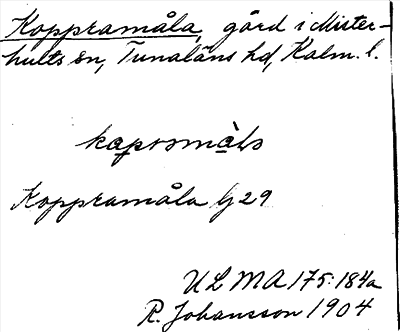 Koppramåla, gård i Mister-
hults sn, Tunaläns hd, Kalm. l.
Koppramåla Gj 29
ULMA 175:184a
R. Johansson 1904